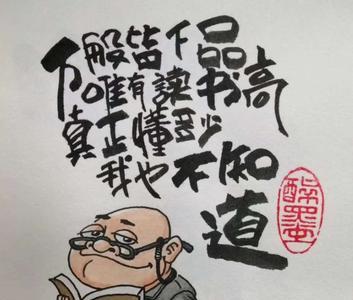 万般皆下品
唯有讀书高
真正懂多少
我也不知道